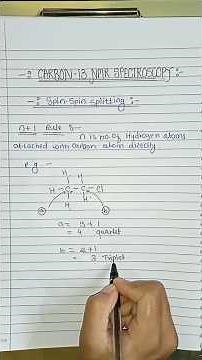 -: CARBON-13 NMR SPECTROSCOPY :-
-: Spin-Spin splitting :-
n+1 Rule :-
n is no. of Hydrogen atoms
attached with carbon atom directly
e.g. -
H H
H - C - C - Cl
H H
a b
a = 3+1
= 4 quartet
b = 2+1
= 3 Triplet